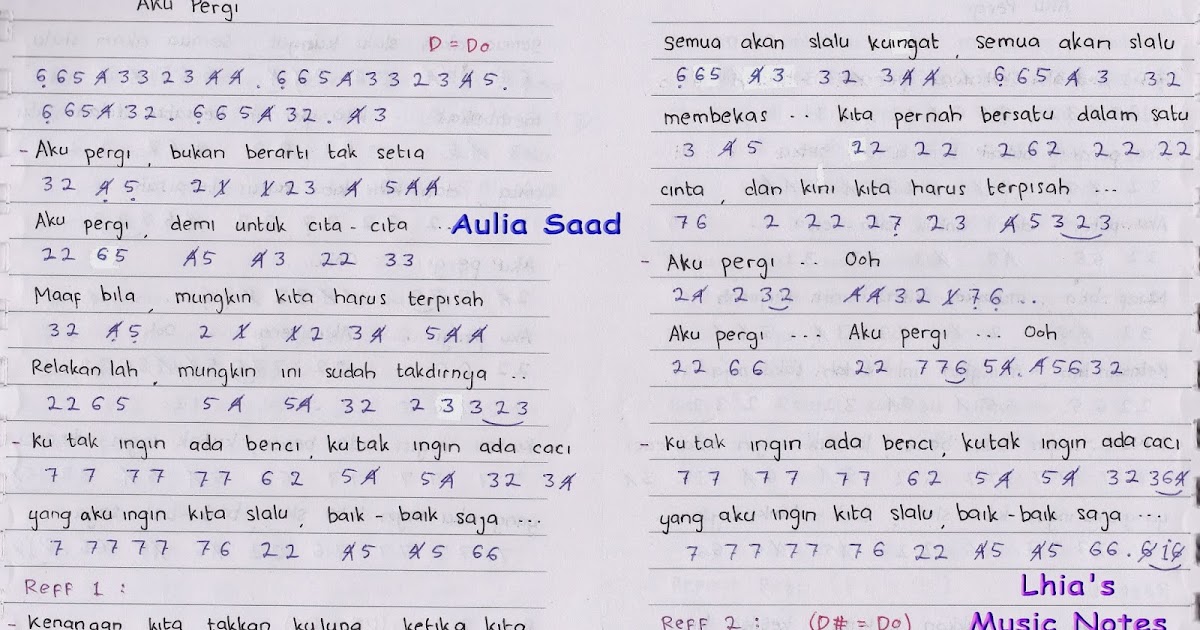 Aku Pergi
D = Do
6 6 5 4 3 3 2 3 4 4 . 6 6 5 4 3 3 2 3 4 5 .
6 6 5 4 3 2 . 6 6 5 4 3 2 . 4 3
- Aku pergi , bukan berarti tak setia
3 2 4 5 2 1 1 2 3 4 5 4 4
Aku pergi , demi untuk cita - cita ...
2 2 6 5 4 5 4 3 2 2 3 3
Maaf bila , mungkin kita harus terpisah
3 2 4 5 2 1 1 2 3 4 5 4 4
Relakan lah , mungkin ini sudah takdirnya ...
2 2 6 5 5 4 5 4 3 2 2 3 3 2 3
- Ku tak ingin ada benci , ku tak ingin ada caci
7 7 7 7 7 7 6 2 5 4 5 4 3 2 3 4
yang aku ingin kita slalu , baik - baik saja ...
7 7 7 7 7 7 6 2 2 4 5 4 5 6 6
Reff 1 :
- Kenangan kita takkan kulupa , ketika kita
Aulia Saad
semua akan slalu kuingat , semua akan slalu
6 6 5 4 3 3 2 3 4 4 6 6 5 4 3 3 2
membekas ... kita pernah bersatu dalam satu
3 4 5 2 2 2 2 2 6 2 2 2 2 2
cinta , dan kini kita harus terpisah ...
7 6 2 2 2 2 7 2 3 4 5 3 2 3
- Aku pergi ... Ooh
2 4 2 3 2 4 4 3 2 1 7 6 ..
Aku pergi ... Aku pergi ... Ooh
2 2 6 6 2 2 7 7 6 5 4 . 4 5 6 3 2
- Ku tak ingin ada benci , ku tak ingin ada caci
7 7 7 7 7 7 6 2 5 4 5 4 3 2 3 6 4
yang aku ingin kita slalu , baik - baik saja ...
7 7 7 7 7 7 6 2 2 4 5 4 5 6 6 .
Reff 2 : (D# = Do)
Lhia's
Music Notes